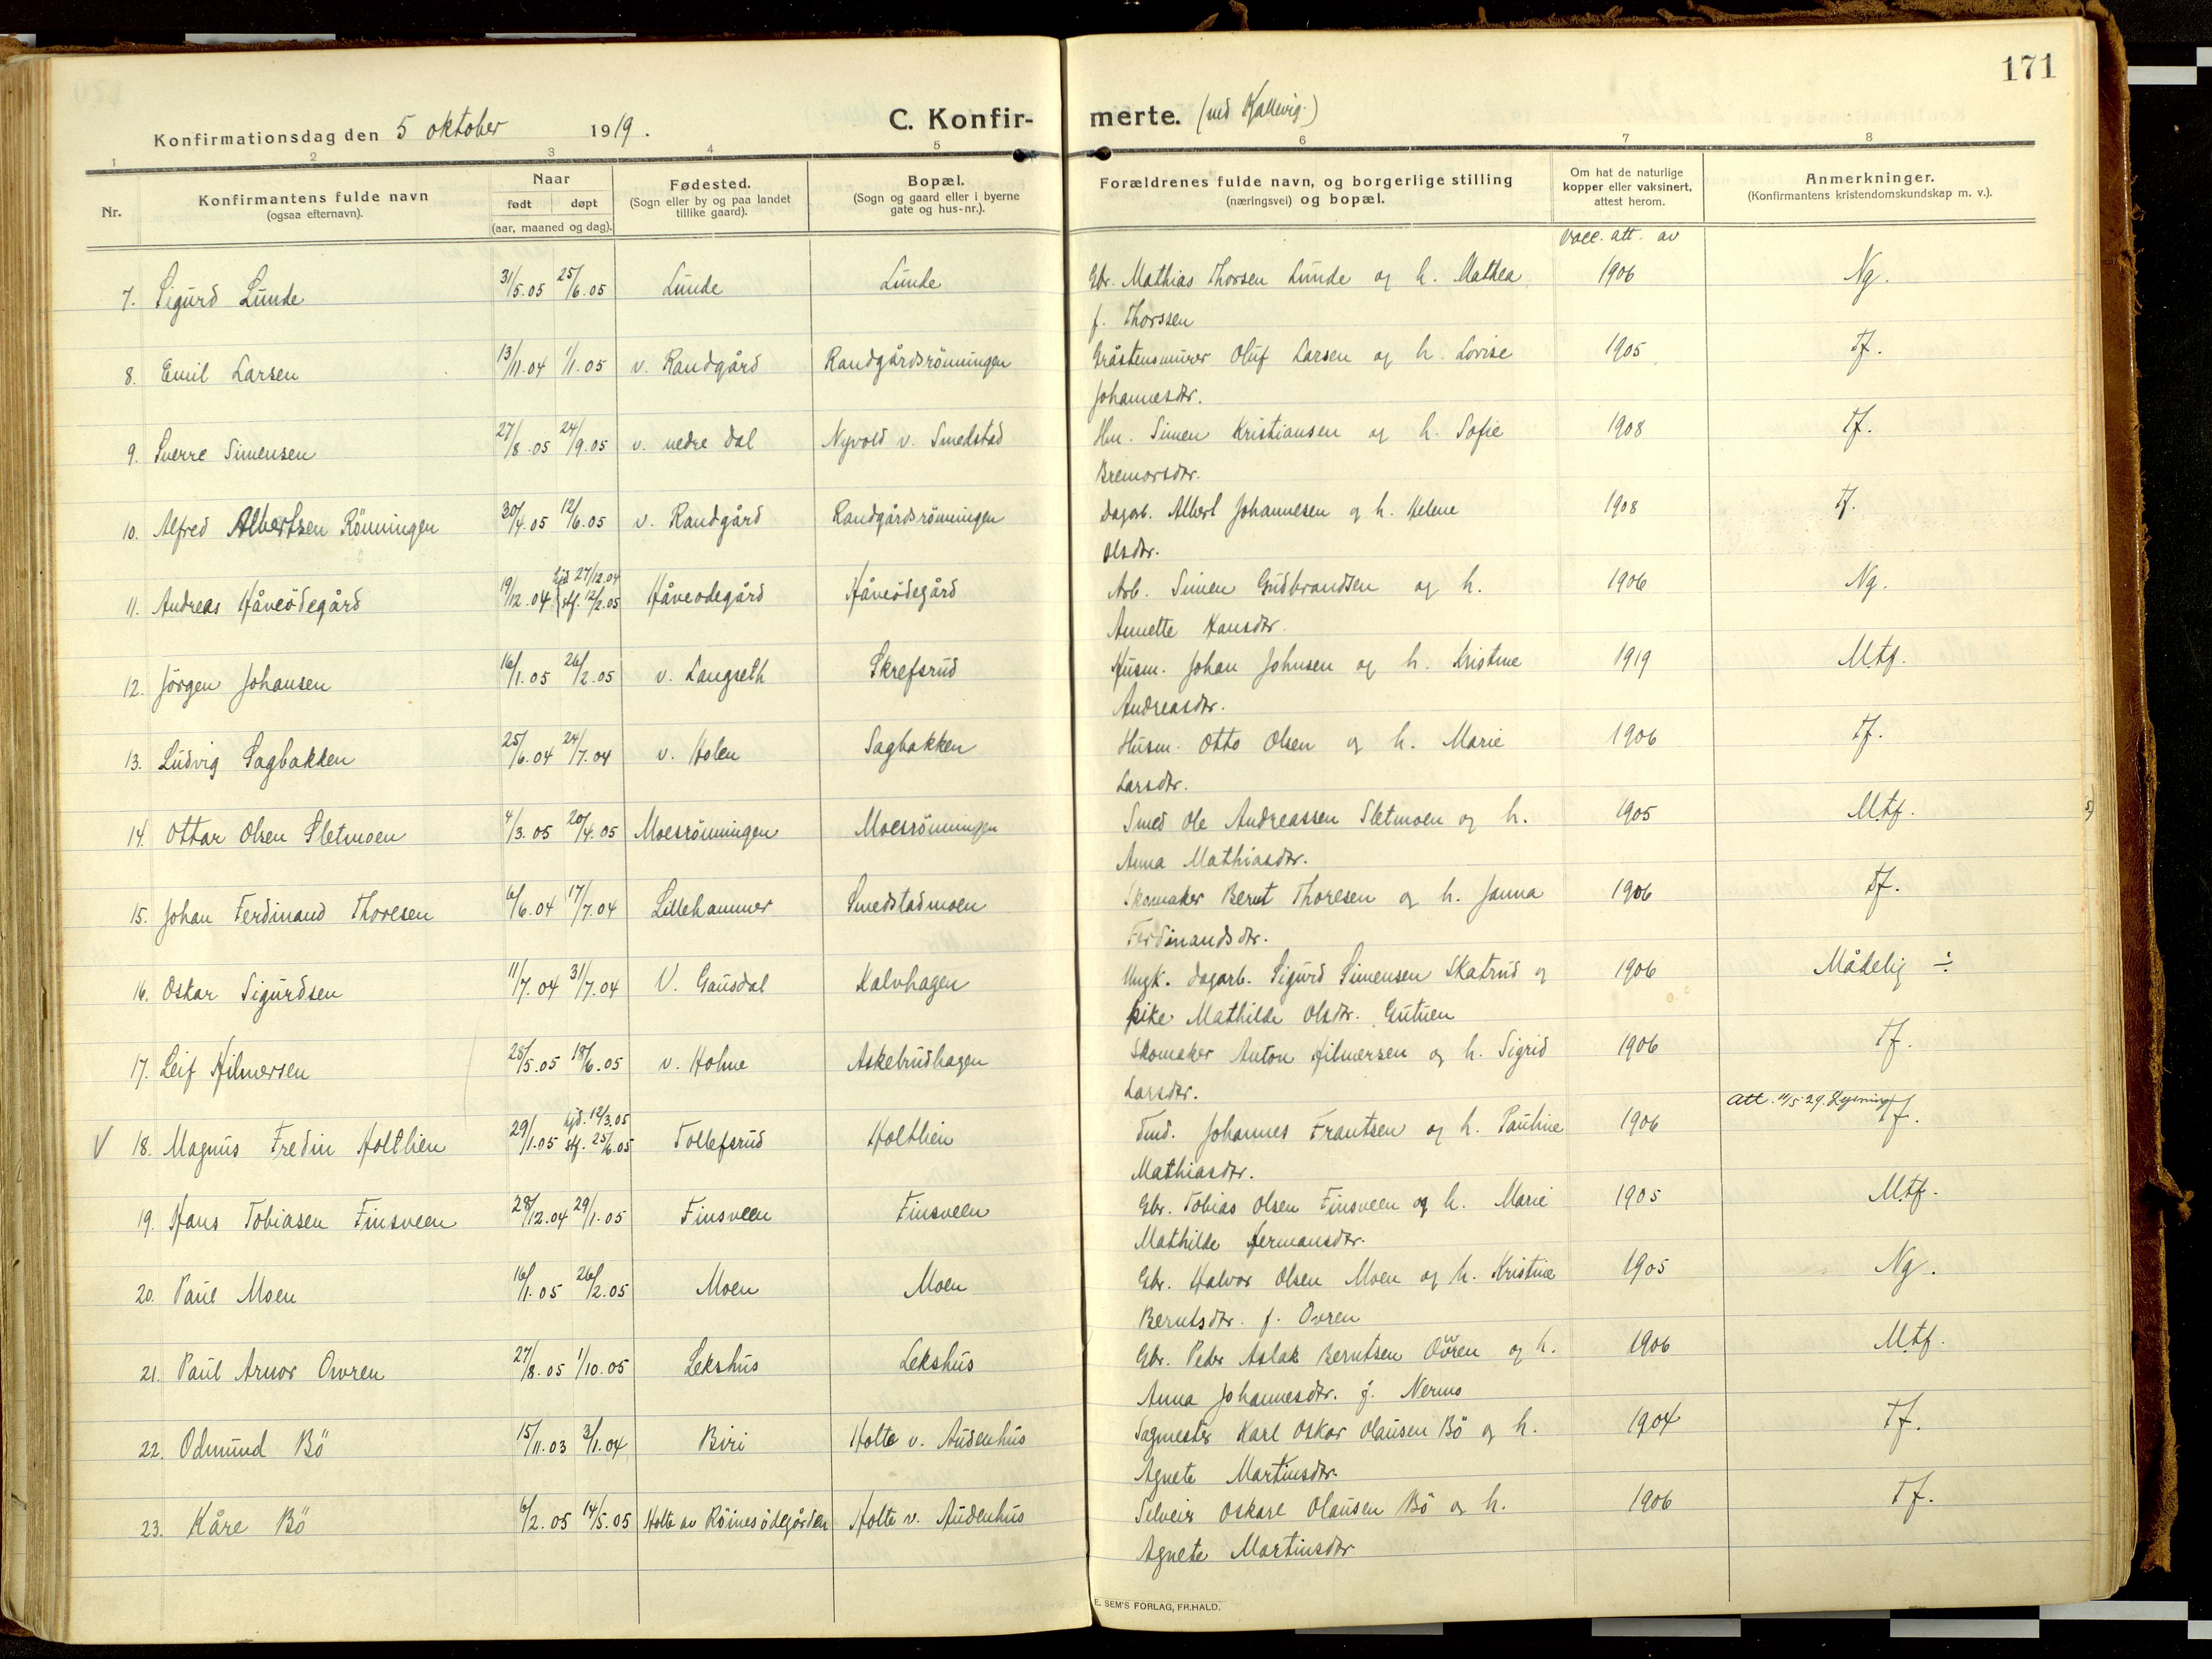 171
Konfirmationsdag den 5 oktober 1919.
C. Konfirmerte. (ved Kallevig.)
1 2 3 4 5 6 7 8
Nr.
Konfirmantens fulde navn
(ogsaa efternavn).
Naar
født døpt
(aar, maaned og dag).
Fødested.
(Sogn eller by og paa landet
tillike gaard).
Bopæl.
(Sogn og gaard eller i byerne
gate og hus-nr.).
Forældrenes fulde navn, og borgerlige stilling
(næringsvei) og bopæl.
Om hat de naturlige
kopper eller vaksinert,
attest herom.
Anmerkninger.
(Konfirmantens kristendomskundskap m. v.).
Vacc. att. av
7. Sigurd Lunde 31/5.05 25/6.05 Lunde Lunde Gbr. Mathias Thorsen Lunde og h. Mathea 1906 Ng.
f. Thorssen
8. Emil Larsen 13/11.04 1/1.05 v. Randgård Randgårdsrönningen Gråstensmurer Oluf Larsen og h. Lovise 1905 Tf.
Johannesdtr.
9. Sverre Simensen 27/8.05 24/9.05 v. nedre Dal Nyvold v. Smedstad Hm. Simen Kristiansen og h. Sofie 1908 Tf.
Bremorsdtr.
10. Alfred Albertsen Rönningen 30/4.05 12/6.05 v. Randgård Randgårdsrönningen Dagarb. Albert Johannesen og h. Helene 1908 Tf.
Olsdtr.
11. Andreas Håveödegård 19/12.04 hjd 27/12.04 stf. 12/2.05 Håveodegård Håveödegård Arb. Simen Gudbrandsen og h. 1906 Ng.
Annette Hansdtr.
12. Jörgen Johansen 16/1.05 26/2.05 v. Langseth Skrefsrud Husm. Johan Johnsen og h. Kristine 1919 Mtg.
Andreasdtr.
13. Ludvig Sagbakken 25/6.04 24/7.04 v. Holen Sagbakken Husm. Otto Olsen og h. Marie 1906 Tf.
Larsdtr.
14. Ottar Olsen Sletmoen 4/3.05 20/4.05 Moesrönningen Moesrönningen Smed Ole Andreassen Sletmoen og h. 1905 Mtf.
Anna Mathiasdtr.
15. Johan Ferdinand Thoresen 6/6.04 17/7.04 Lillehammer Smedstadmoen Skomaker Bernt Thoresen og h. Janna 1906 Tf.
Ferdinandsdtr.
16. Oskar Sigurdsen 11/7.04 31/7.04 V. Gausdal Kalvhagen Ungk. dagarb. Sigurd Simensen Skatrud og 1906 Mådelig ÷
pike Mathilde Olsdtr. Gutuen
17. Leif Hilmersen 28/5.05 18/6.05 v. Holme Askebrudhagen Skomaker Anton Hilmersen og h. Sigrid 1906 Tf.
Larsdtr.
V 18. Magnus Fredin Holthien 29/1.05 hjd. 12/3.05 stf. 25/6.05 Tollefsrud Holthien Tmd. Johannes Frantsen og h. Pauline 1906 Att. 11/5 29. Lysning Tf.
Mathiasdtr.
19. Hans Tobiasen Finsveen 28/12.04 29/1.05 Finsveen Finsveen Gbr. Tobias Olsen Finsveen og h. Marie 1905 Mtf.
Mathilde Hermansdtr.
20. Paul Moen 16/1.05 26/2.05 Moen Moen Gbr. Halvor Olsen Moen og h. Kristine 1905 Ng.
Berntsdtr. f. Ovren
21. Paul Arnor Owren 27/8.05 1/10.05 Lekshus Lekshus Gbr. Peder Aslak Berntsen Owren og h. 1906 Mtf.
Anna Johannesdtr. f. Nermo
22. Odmund Bö 15/11.03 3/1.04 Biri Holte v. Audenhus Sagmester Karl Oskar Olausen Bö og h. 1904 Tf.
Agnete Martinsdtr.
23. Kåre Bö 6/2.05 14/5.05 Holte av Röinesödegården Holte v. Audenhus Selveier Oskarl Olausen Bö og h. 1906 Tf.
Agnete Martinsdtr
E. SEM'S FORLAG, FR.HALD.